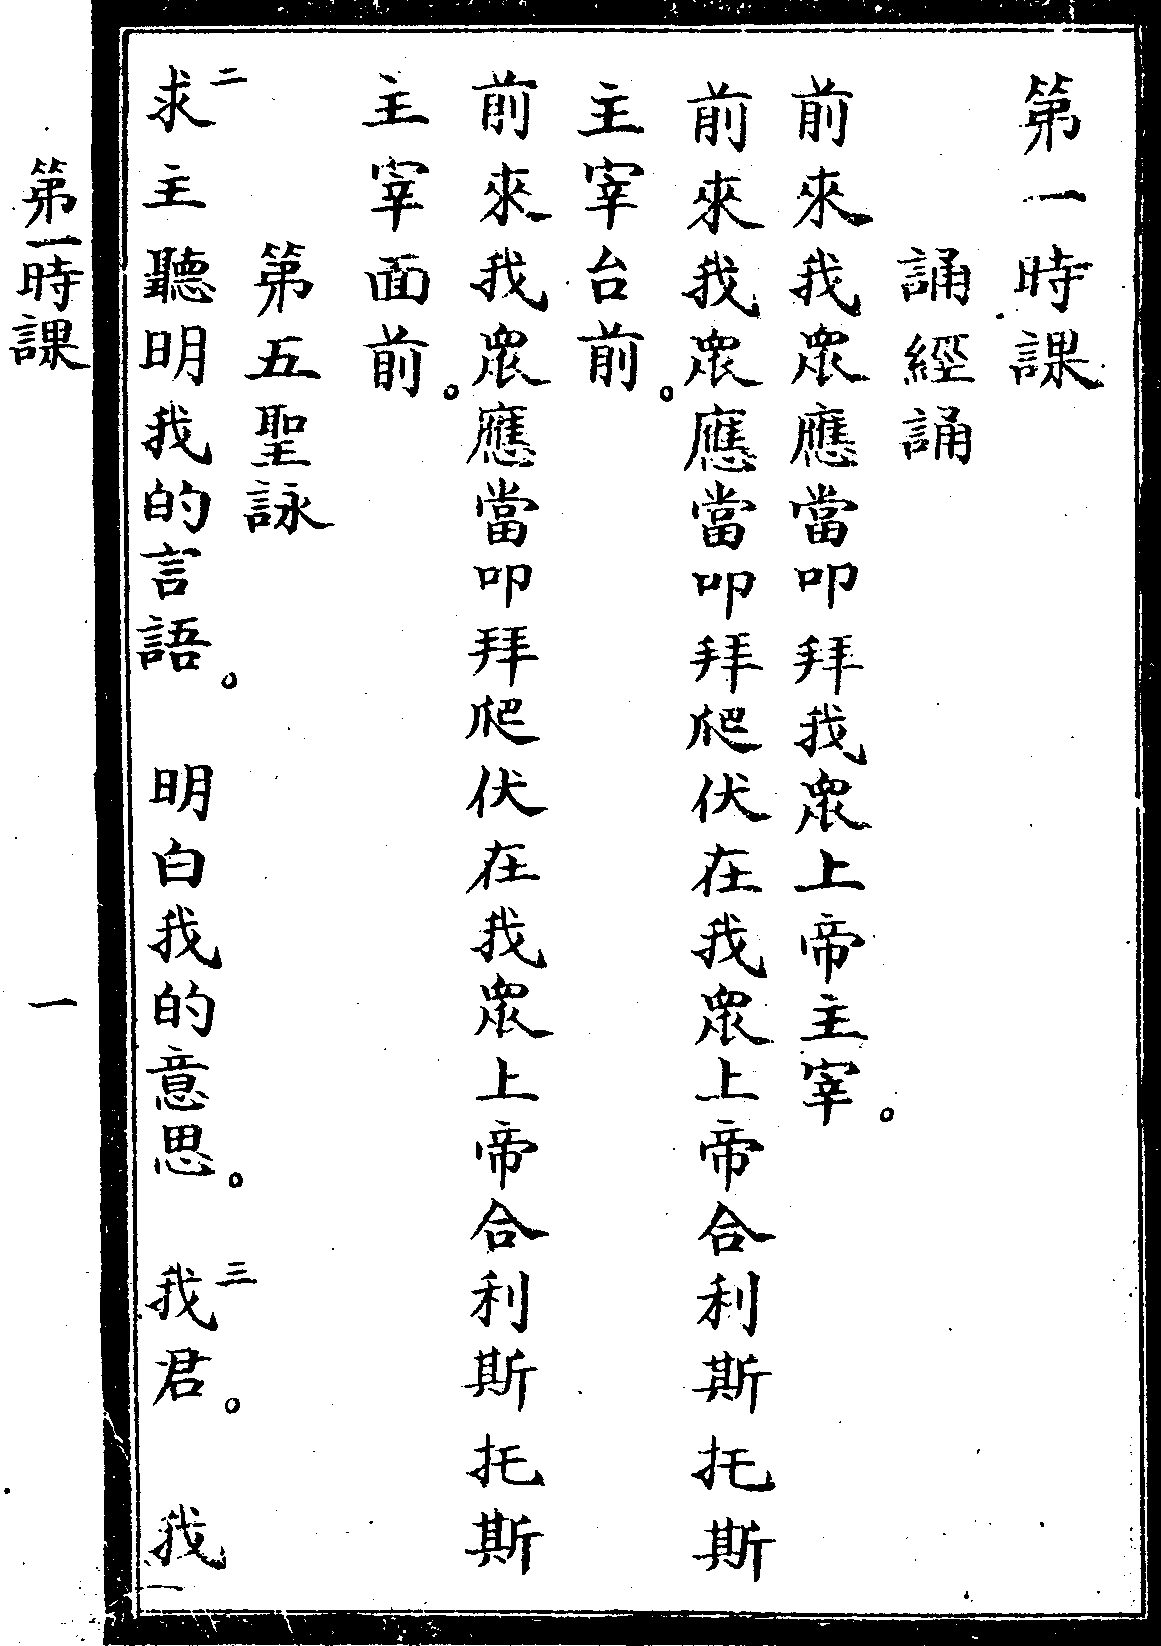 第一時課
誦經誦
前來我衆應當叩拜我衆上帝主宰。
前來我衆應當叩拜爬伏在我衆上帝合利斯托斯
主宰台前。
前來我衆應當叩拜爬伏在我衆上帝合利斯托斯
主宰面前。
第五聖詠
二求主聽明我的言語。 明白我的意思。 三我君。 我
第一時課 一